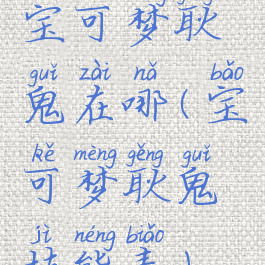 宝可梦耿
guǐ zài nǎ bǎo
鬼在哪(宝
kě mèng gěng guǐ
可梦耿鬼
jì néng biǎo